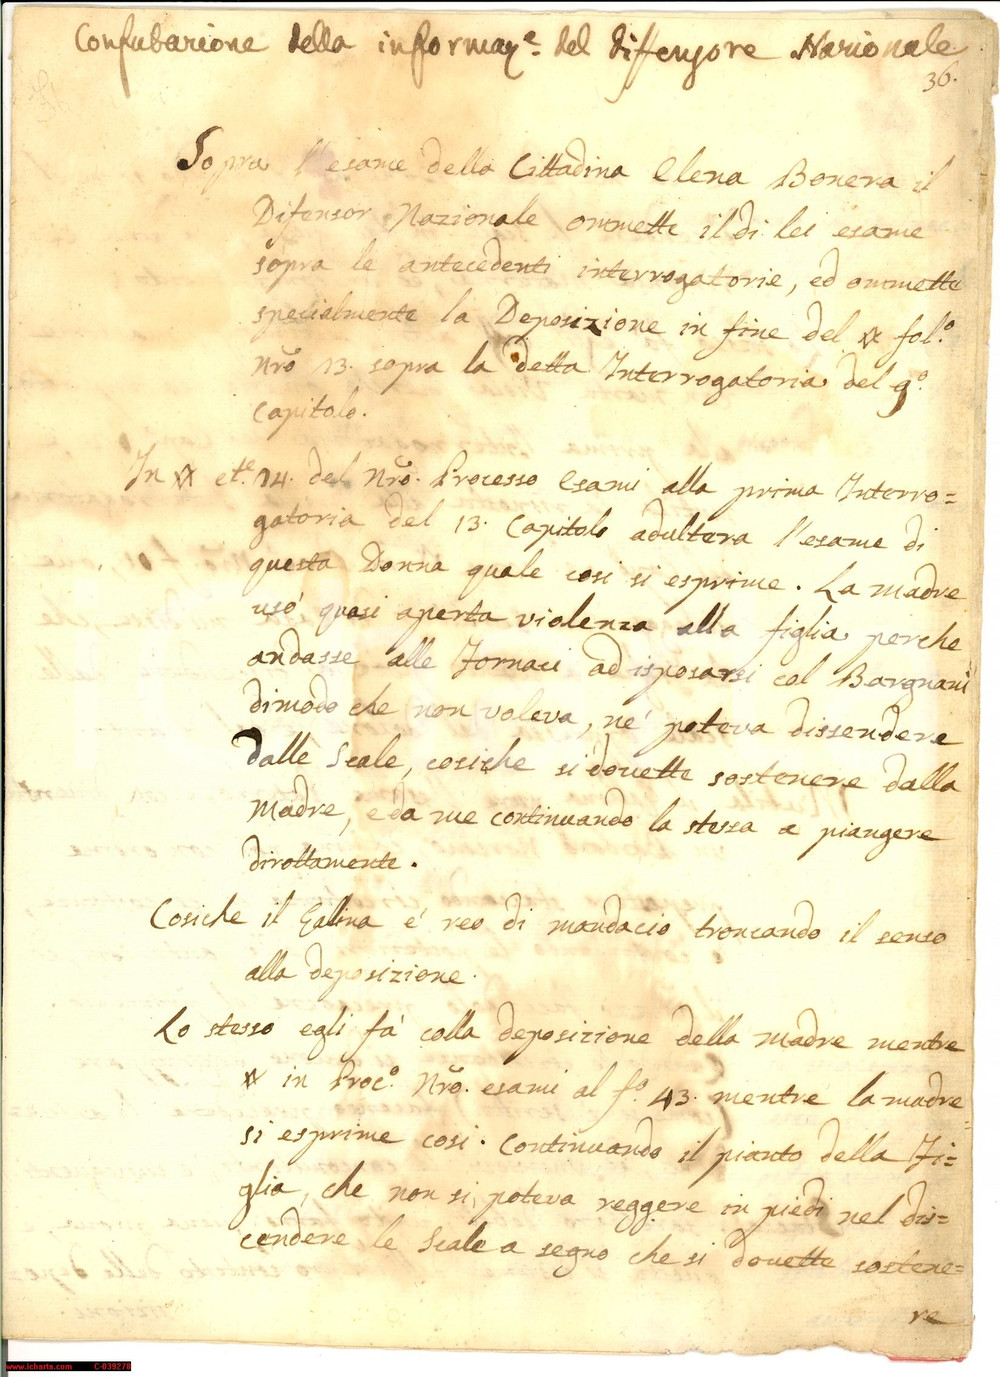 Confutazione della informaz.e del diffensore Nazionale
36.
Sopra l'esame della Cittadina Elena Bonera il
Difensor Nazionale ommette il di lei esame
sopra le antecedenti interrogatorie, ed ommette
specialmente la Deposizione in fine del ☆ fol.o
Nro 13. sopra la detta Interrogatoria del 9.o
Capitolo.
In ☆ et.e 14. del Nro. Processo Esami alla prima Interro=
gatoria del 13. Capitolo adultera l'esame di
questa Donna quale così si esprime. La madre
usò quasi aperta violenza alla figlia perche
andasse alle Fornaci ad isposarsi col Bargnani
dimodo che non voleva, ne' poteva dissendere
dalle Scale, cosiche si dovette sostenere dalla
Madre, e da me continuando la stessa a piangere
dirottamente.
Cosiche il Galina é reo di mandacio troncando il senso
alla deposizione.
Lo stesso egli fa' colla deposizione della madre mentre
☆ in Proc.o Nro. esami al f.o 43. mentre la madre
si esprime così. Continuando il pianto della Fi=
glia, che non si poteva reggere in piedi nel dis=
cendere le Scale a segno che si dovette sostene=
re
www.icharta.com C-039278